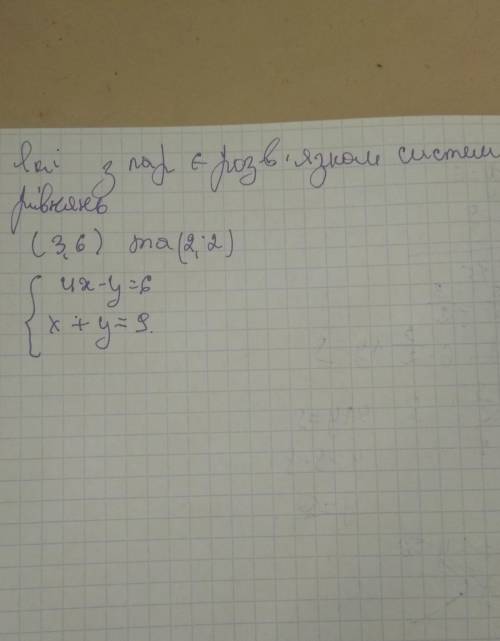 які з пар є розв'язком систем
рівнянь
(3,6) та (2,2)
4x-y=6
x+y=9.